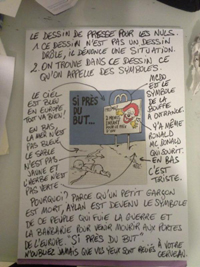 LE DESSIN DE PRESSE POUR LES NULS.
1. CE DESSIN N'EST PAS UN DESSIN
DRÔLE, IL DÉNONCE UNE SITUATION.
2. ON TROUVE DANS CE DESSIN CE
QU'ON APPELLE DES SYMBOLES.
LE CIEL
EST BLEU
EN EUROPE,
TOUT VA BIEN!
EN BAS,
LA MER N'EST
PAS BLEUE,
LE SABLE
N'EST PAS
JAUNE ET
L'HERBE N'EST
PAS VERTE
SI PRÈS
DU BUT...
MCDO
EST LE
SYMBOLE
DE LA
BOUFFE
À OUTRANCE.
Y'A MÊME
RONALD
MC DONALD
QUI SOURIT.
EN BAS
C'EST
TRISTE.
POURQUOI? PARCE QU'UN PETIT GARÇON
EST MORT, AYLAN EST DEVENU LE SYMBOLE
DE CE PEUPLE QUI FUIE LA GUERRE ET
LA BARBARIE POUR VENIR MOURIR AUX PORTES
DE L'EUROPE. "SI PRÈS DU BUT"
N'OUBLIEZ JAMAIS QUE VOS YEUX SONT RELIÉS
À VOTRE
CERVEAU.